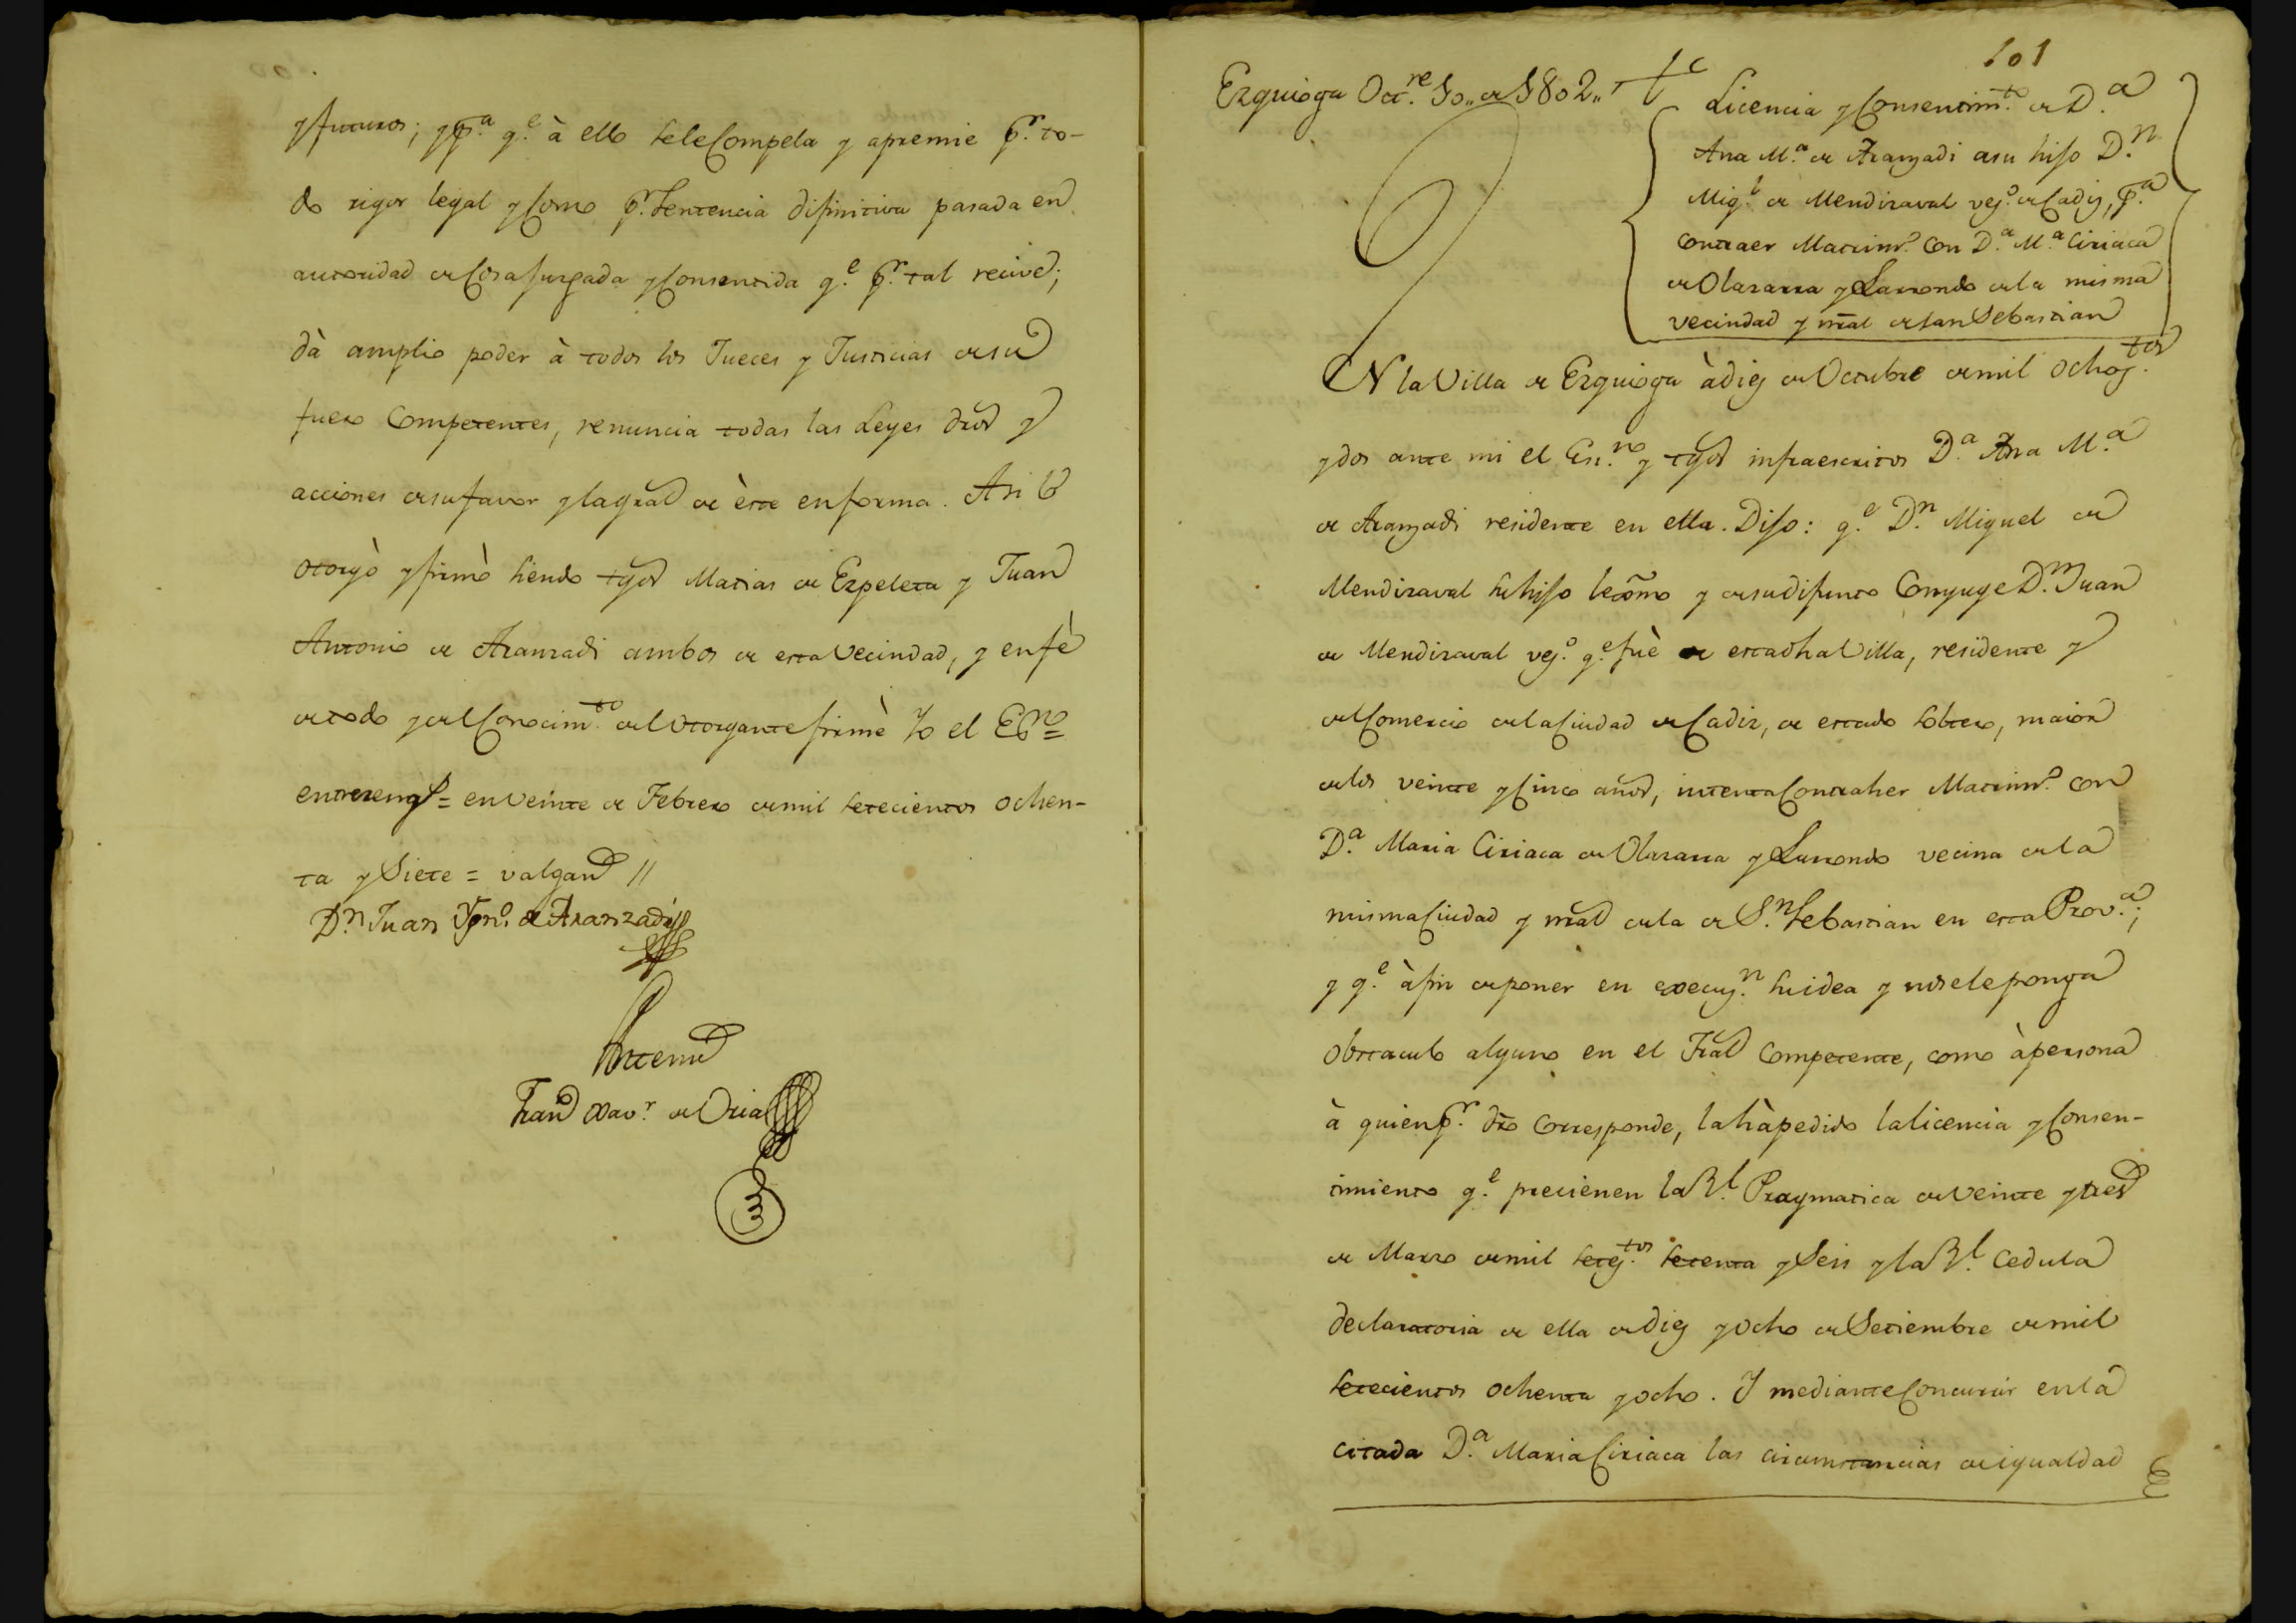 y futuros; y p.ª q.e à ello se le Compela y apremie p.r to-
do rigor legal y Como p.r Sentencia difinitiva pasada en
autoridad de Cosa Juzgada y Consentida q.e p.r tal recive;
dà amplio poder à todos los Jueces y Justicias de su
fuero Competentes, renuncia todas las Leyes dros y
acciones de su favor y la gral de èste en forma. Asi lo
otorgò y firmò siendo tgos Matias de Ezpeleta y Juan
Antonio de Aranzadi ambos de esta Vecindad, y en fè
de todo y del Conocim.to del Otorgante firmè Yo el Es.no =
entrereng.s = en Veinte de Febrero de mil setecientos ochen-
ta y Siete = valgan //
D.n Juan Ygn.o de Aranzadi
Ante mi
Fran.co Xav.r de Oria
101
Ezquioga Oct.re 10,, de 1802,,
Licencia y Consentim.to de D.ª
Ana M.ª de Aranzadi a su hijo D.n
Mig.l de Mendizaval vez.o de Cadiz, p.ª
contraer Matrim.o con D.ª M.ª Ciriaca
de Olazarra y Larrondo de la misma
vecindad y nral de San Sebastian
EN la Villa de Ezquioga à diez de Octubre de mil ochoz.tos
y dos ante mi el Es.no y tgos infraescritos D.ª Ana M.ª
de Aranzadi residente en ella. Dijo: q.e D.n Miguel de
Mendizaval su hijo lexmo y de su difunto Conyuge D.n Juan
de Mendizaval vez.o q.e fuè de esta dha Villa, residente y
del Comercio de la Ciudad de Cadiz, de estado soltero, maior
de los veinte y Cinco años, intenta Contraher Matrim.o con
D.ª Maria Ciriaca de Olazarra y Larrondo vecina de la
misma Ciudad y nral de la de S.n Sebastian en esta Prov.ª;
y q.e à fin de poner en execuz.n su idea y no se le ponga
obstaculo alguno en el Tral Competente, como à persona
à quien p.r dro corresponde, la hà pedido la licencia y Consen-
timiento q.e previenen la R.l Pragmatica de Veinte y tres
de Marzo de mil setez.tos setenta y Seis y la R.l Cedula
declaratoria de ella de diez y ocho de Setiembre de mil
setecientos ochenta y ocho. Y mediante Concurrir en la
citada D.ª Maria Ciriaca las circunstancias de igualdad